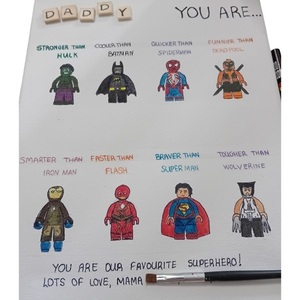 DADDY YOU ARE...
STRONGER THAN HULK
COOLER THAN BATMAN
QUICKER THAN SPIDERMEN
FUNNIER THAN DEADPOOL
SMARTER THAN IRON MAN
FASTER THAN FLASH
BRAVER THAN SUPERMAN
TOUGHER THAN WOLVERINE
YOU ARE OUR FAVOURITE SUPERHERO!
LOTS OF LOVE, MAMA